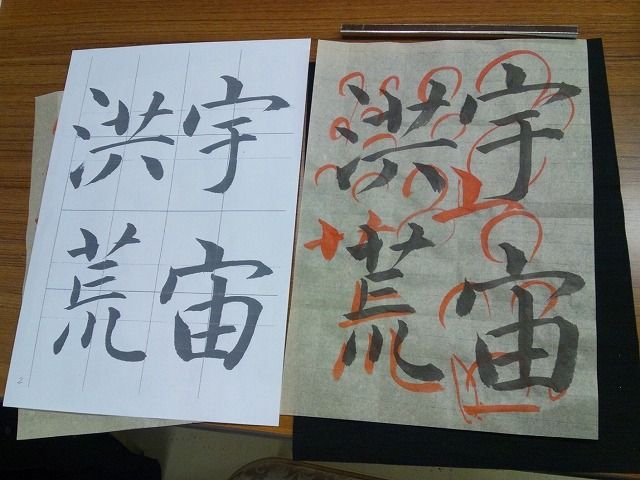 宇宙
洪荒
2
宇宙
洪荒